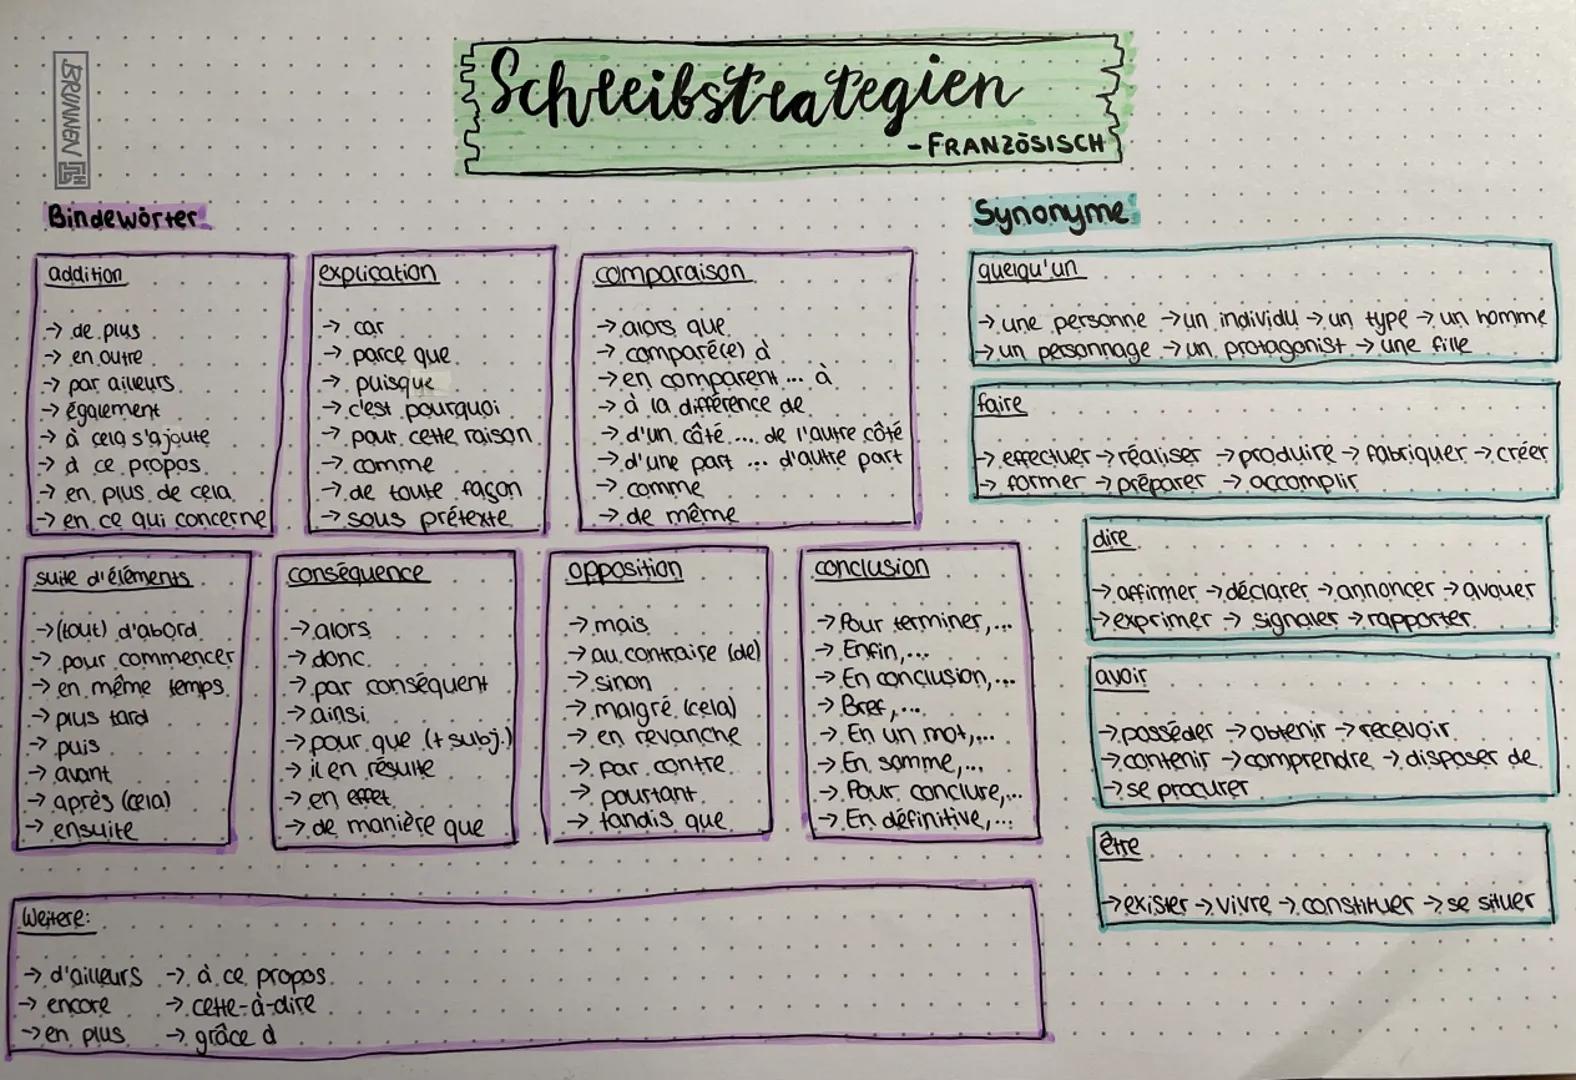 BRUNNEN
Schreibstrategien
- FRANZÖSISCH
Bindewörter
addition
→ de plus
→ en outre
→ par ailleurs
→ également
→ à cela s'ajoute
→ à ce propos
→ en plus de cela
→ en ce qui concerne
explication
→ car
→ parce que
→ puisque
→ c'est pourquoi
→ pour cette raison
→ comme
→ de toute façon
→ sous prétexte
comparaison
→ alors que
→ comparé(e) à
→ en comparent ... à
→ à la différence de
→ d'un côté ... de l'autre côté
→ d'une part ... d'autre part
→ comme
→ de même
suite d'éléments
→ (tout) d'abord
→ pour commencer
→ en même temps
→ plus tard
→ puis
→ avant
→ après (cela)
→ ensuite
conséquence
→ alors
→ donc
→ par conséquent
→ ainsi
→ pour que (+ subj.)
→ il en résulte
→ en effet
→ de manière que
opposition
→ mais
→ au contraire (de)
→ sinon
→ malgré (cela)
→ en revanche
→ par contre
→ pourtant
→ tandis que
conclusion
→ Pour terminer,...
→ Enfin,...
→ En conclusion,...
→ Bref,...
→ En un mot,...
→ En somme,...
→ Pour conclure,...
→ En définitive,...
Weitere:
→ d'ailleurs → à ce propos
→ encore → cette-à-dire
→ en plus → grâce à
Synonyme
quelqu'un
→ une personne → un individu → un type → un homme
→ un personnage → un protagonist → une fille
faire
→ effectuer → réaliser → produire → fabriquer → créer
→ former → préparer → accomplir
dire
→ affirmer → déclarer → annoncer → avouer
→ exprimer → signaler → rapporter
avoir
→ posséder → obtenir → recevoir
→ contenir → comprendre → disposer de
→ se procurer
être
→ exister → vivre → constituer → se situer